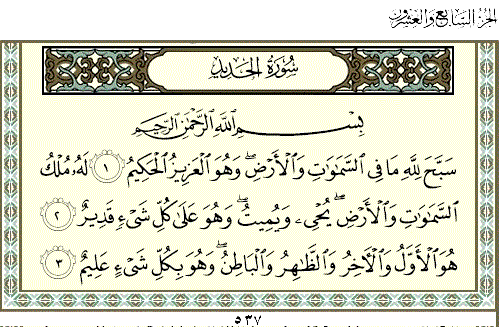 الجزء السابع والعشرون
سُورَةُ الحَدِيدِ
بِسْمِ اللَّهِ الرَّحْمَٰنِ الرَّحِيمِ
سَبَّحَ لِلَّهِ مَا فِي السَّمَٰوَٰتِ وَالْأَرْضِ ۖ وَهُوَ الْعَزِيزُ الْحَكِيمُ ١ لَهُ مُلْكُ
السَّمَٰوَٰتِ وَالْأَرْضِ ۖ يُحْيِۦ وَيُمِيتُ ۖ وَهُوَ عَلَىٰ كُلِّ شَيْءٍ قَدِيرٌ ٢
هُوَ الْأَوَّلُ وَالْآخِرُ وَالظَّٰهِرُ وَالْبَاطِنُ ۖ وَهُوَ بِكُلِّ شَيْءٍ عَلِيمٌ ٣
٥٣٧